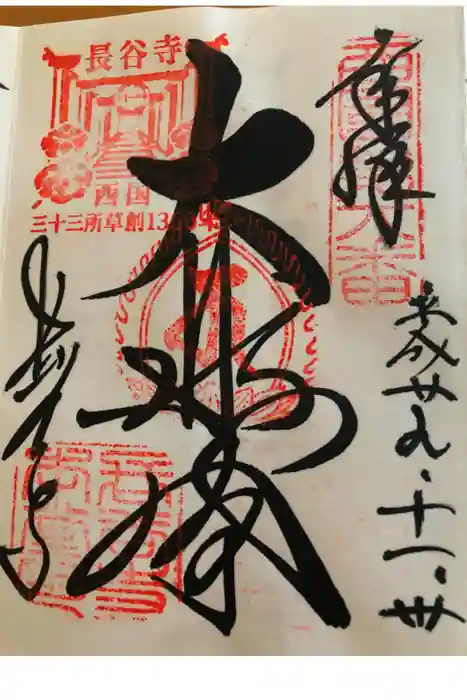 奉拝
平成廿九、十一、卅
大悲閣
長谷寺
長谷寺
西国
三十三所草創1300年
西国第八番